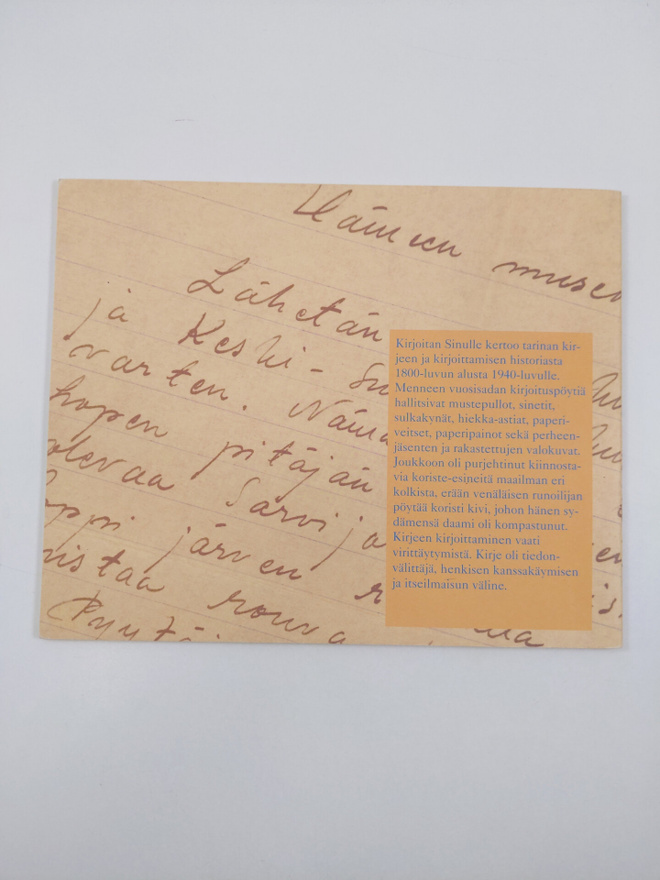 Hämeen
Lähetän
ja Keski-
varten.
hopen pitäjän
olevaa Sarvija
järven
rouva
Kirjoitan Sinulle kertoo tarinan kir-
jeen ja kirjoittamisen historiasta
1800-luvun alusta 1940-luvulle.
Menneen vuosisadan kirjoituspöytiä
hallitsivat mustepullot, sinetit,
sulkakynät, hiekka-astiat, paperi-
veitset, paperipainot sekä perheen-
jäsenten ja rakastettujen valokuvat.
Joukkoon oli purjehtinut kiinnosta-
via koriste-esineitä maailman eri
kolkista, erään venäläisen runoilijan
pöytää koristi kivi, johon hänen sy-
dämensä daami oli kompastunut.
Kirjeen kirjoittaminen vaati
virittäytymistä. Kirje oli tiedon-
välittäjä, henkisen kanssakäymisen
ja itseilmaisun väline.